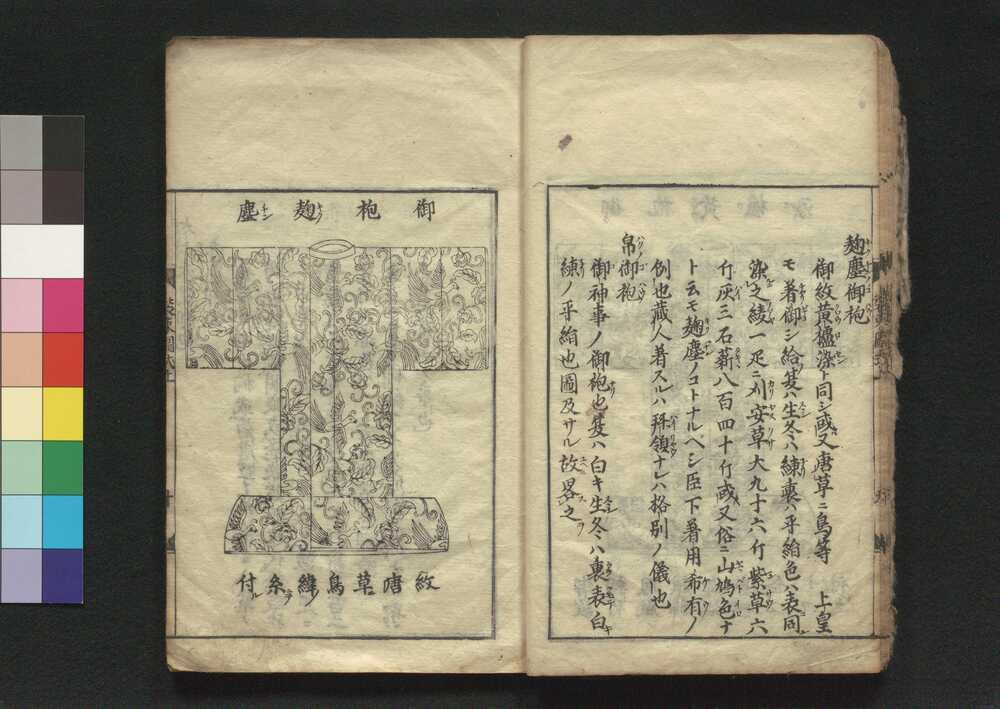 麹塵御袍
御紋黄櫨染ト同シ或又唐草ニ鳥等　上皇
モ着御シ給夏ハ生冬ハ練裏ハ平絹色ハ表同
染之綾一疋ニ刈安草大九十六斤紫草六
斤灰三石薪八百四十斤或又俗ニ山鳩色ナ
ト云モ麹塵ノコトナルヘシ臣下着用布有ノ
例也蔵人着スルハ拝領ナレハ格別ノ儀也
帛御袍
御神事ノ御袍也夏ハ白キ生冬ハ裏表白
練ノ平絹也圖及サル故畧之
御袍麹塵
紋唐草鳥緯糸付